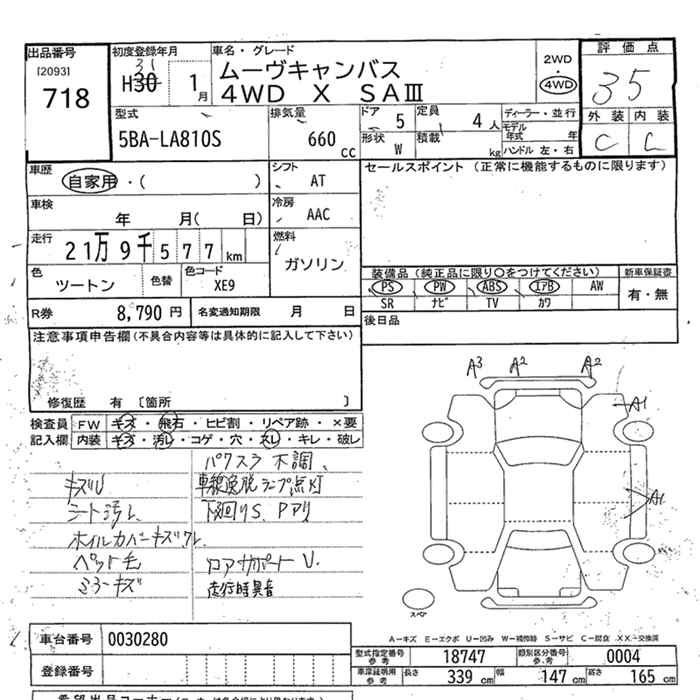 出品番号
[2093]
718
初度登録年月
31
H30 1月
車名・グレード
ムーヴキャンバス
4WD X SAⅢ
2WD
・
4WD
評価点
35
外装 内装
C C
型式
5BA-LA810S
排気量
660 cc
ドア 5
定員 4 人
形状 W
積載 kg
ディーラー・並行
モデル年式 年
ハンドル 左・右
車歴
自家用・( )
シフト
AT
セールスポイント (正常に機能するものに限ります)
車検
年 月( 日)
冷房
AAC
走行
21万9千577km
燃料
ガソリン
色
ツートン
色替
色コード
XE9
装備品 (純正品に限り○をつけてください)
新車保証書
PS PW ABS エアB AW
SR ナビ TV カワ
有・無
R券 8,790円
名変通知期限 月 日
後日品
注意事項申告欄(不具合内容等は具体的に記入して下さい)
修復歴 有 〔箇所 〕
検査員記入欄
FW キズ・飛石・ヒビ割・リペア跡・×要
内装 キズ・汚レ・コゲ・穴・スレ・キレ・破レ
パワスラ 不調、
キズU
車線逸脱ランプ点灯
シート汚レ
下回りS、Pアリ
ホイルカバーキズワレ
ペット毛
コアサポートU.
ミラーキズ
走行時異音
A3 A2 A2
A1
A1
スペア
A-キズ E-エクボ U-凹み W-補修跡 S-サビ C-腐食 XX-交換済
車台番号 0030280
型式指定番号 参考 18747
類別区分番号 参考 0004
登録番号
車庫証明用 参考 長さ 339 cm 幅 147 cm 高さ 165 cm